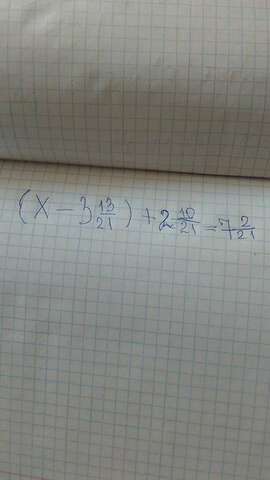 (x - 3 13/21) + 2 10/21 = 7 2/21